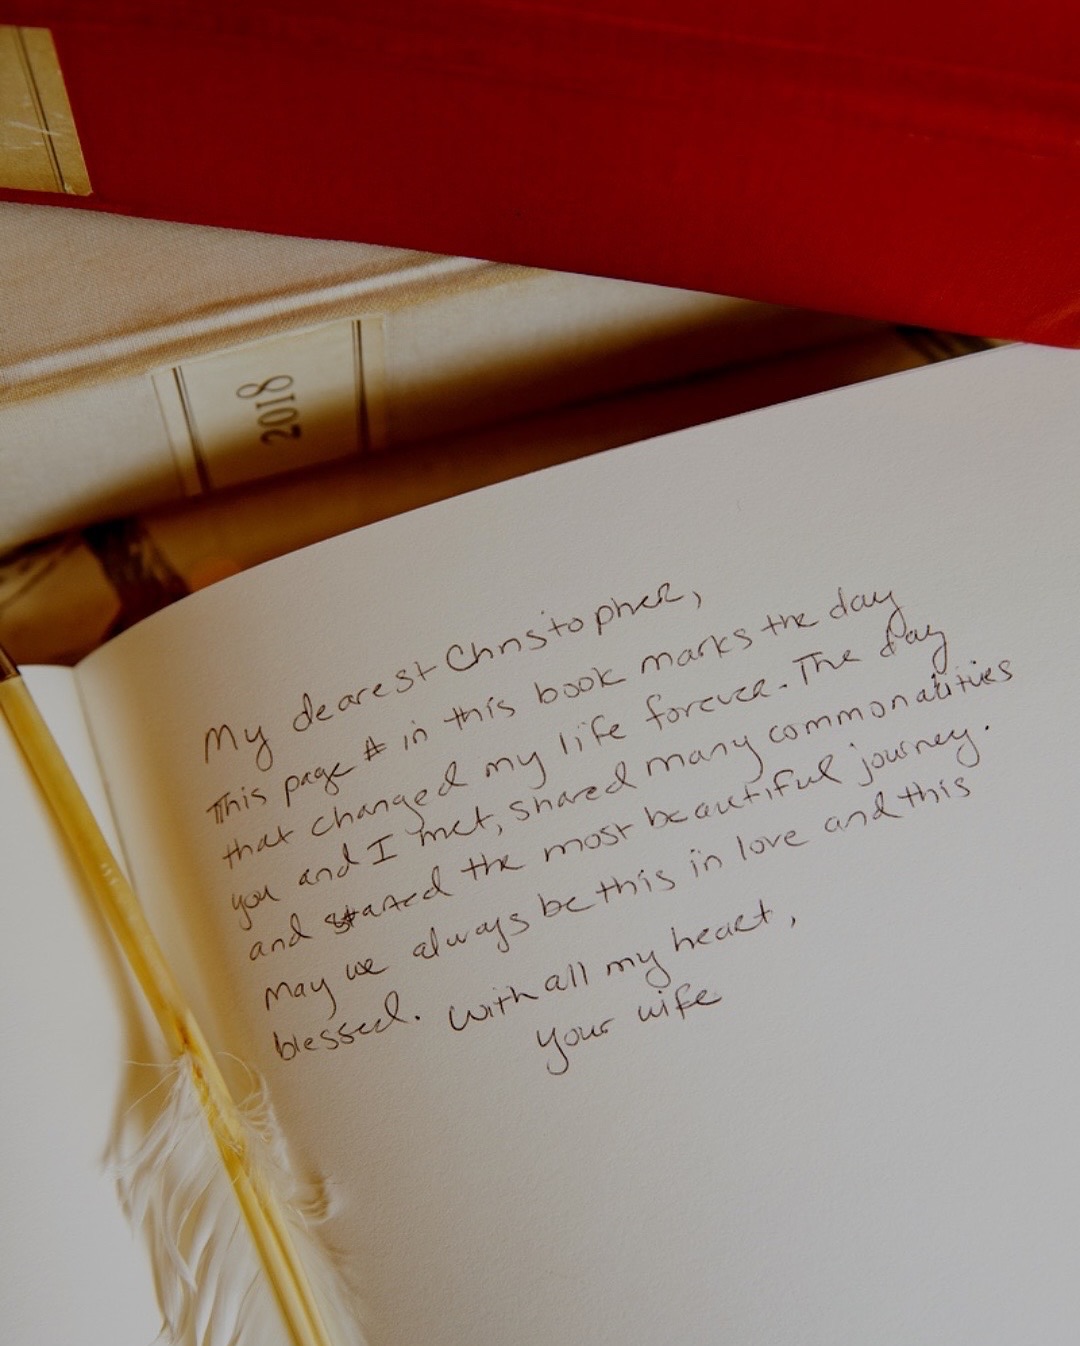 2018
My dearest Christopher,
This page # in this book marks the day
that changed my life forever. The day
you and I met, shared many commonalities
and started the most beautiful journey.
May we always be this in love and this
blessed. With all my heart,
your wife